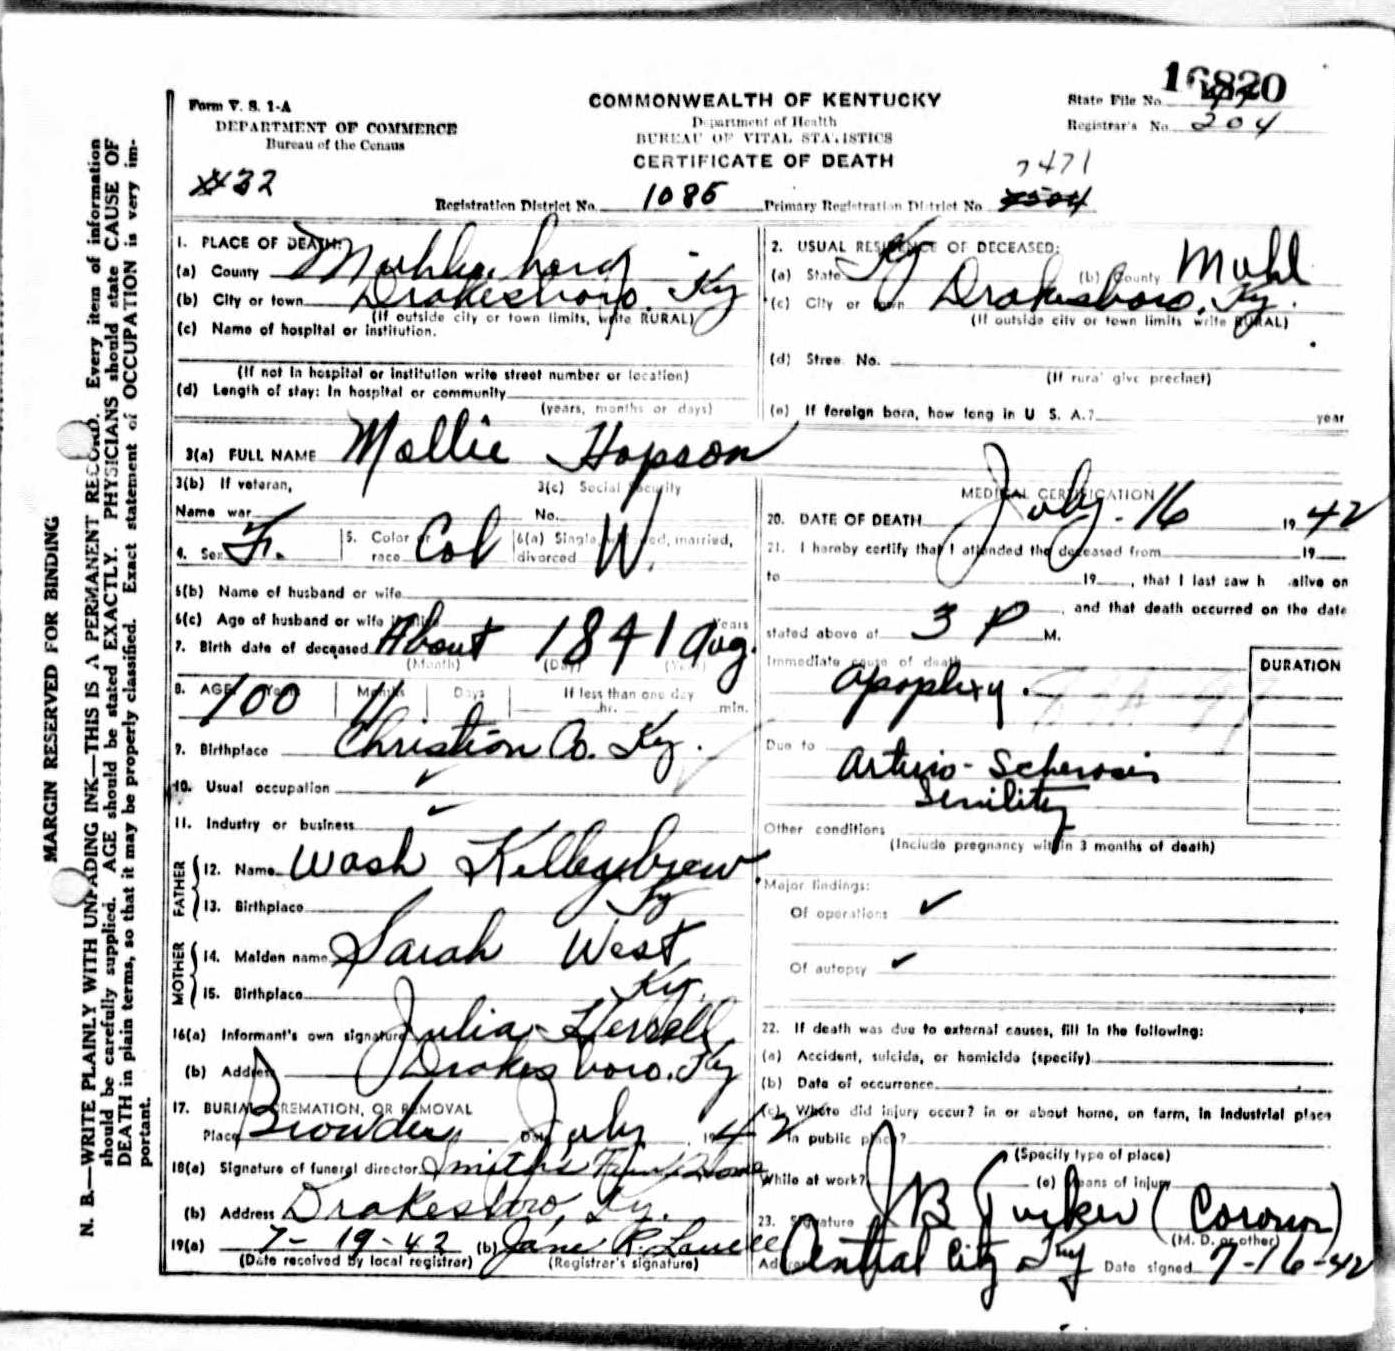 16820
Form V. S. 1-A
DEPARTMENT OF COMMERCE
Bureau of the Census
COMMONWEALTH OF KENTUCKY
Department of Health
BUREAU OF VITAL STATISTICS
CERTIFICATE OF DEATH
State File No.
Registrar's No. 204
7471
Registration District No. 1085 Primary Registration District No.
MARGIN RESERVED FOR BINDING
N. B.—WRITE PLAINLY WITH UNFADING INK—THIS IS A PERMANENT RECORD. Every item of information
should be carefully supplied. AGE should be stated EXACTLY. PHYSICIANS should state CAUSE OF
DEATH in plain terms, so that it may be properly classified. Exact statement of OCCUPATION is very im-
portant.
1. PLACE OF DEATH:
(a) County Muhlenberg Ky
(b) City or town Drakesboro. Ky
(If outside city or town limits, write RURAL)
(c) Name of hospital or institution.
(If not in hospital or institution write street number or location)
(d) Length of stay: In hospital or community
(years, months or days)
2. USUAL RESIDENCE OF DECEASED:
(a) State Ky (b) County Muhl
(c) City or town Drakesboro, Ky.
(If outside city or town limits write RURAL)
(d) Street No.
(If rural give precinct)
(e) If foreign born, how long in U S. A.? year
3(a) FULL NAME Mollie Hopson
3(b) If veteran, 3(c) Social Security
Name war No.
4. Sex F. 5. Color or race Col 6(a) Single, widowed, married, divorced W.
6(b) Name of husband or wife
6(c) Age of husband or wife if alive Years
7. Birth date of deceased About 1841 Aug.
(Month) (Day) (Year)
8. AGE: Years 100 Months 11 Days If less than one day
hr. min.
9. Birthplace Christian Co. Ky.
10. Usual occupation ✓
11. Industry or business ✓
FATHER
12. Name Wash Kellegbrew
13. Birthplace Ky
MOTHER
14. Maiden name Sarah West
15. Birthplace Ky.
16(a) Informant's own signature Julia
(b) Address Drakesboro. Ky
17. BURIAL, CREMATION, OR REMOVAL
Place Browder Date July, 1942
18(a) Signature of funeral director Smith's Home
(b) Address Drakesboro, Ky.
19(a) 7-19-42 (b) Jane R.
(Date received by local registrar) (Registrar's signature)
MEDICAL CERTIFICATION
20. DATE OF DEATH July. 16 1942
21. I hereby certify that I attended the deceased from 19
to 19 , that I last saw h alive on
, and that death occurred on the date
stated above at 3 P M.
Immediate cause of death DURATION
apoplexy.
Due to Arturio-Scherosis
Senility
Other conditions
(Include pregnancy within 3 months of death)
Major findings:
Of operations ✓
Of autopsy ✓
22. If death was due to external causes, fill in the following:
(a) Accident, suicide, or homicide (specify)
(b) Date of occurrence
(c) Where did injury occur? in or about home, on farm, in industrial place
in public place?
(Specify type of place)
While at work? (e) Means of injury
23. Signature J B Tucker (Coroner)
(M. D. or other)
Address Central City Ky Date signed 7-16-42